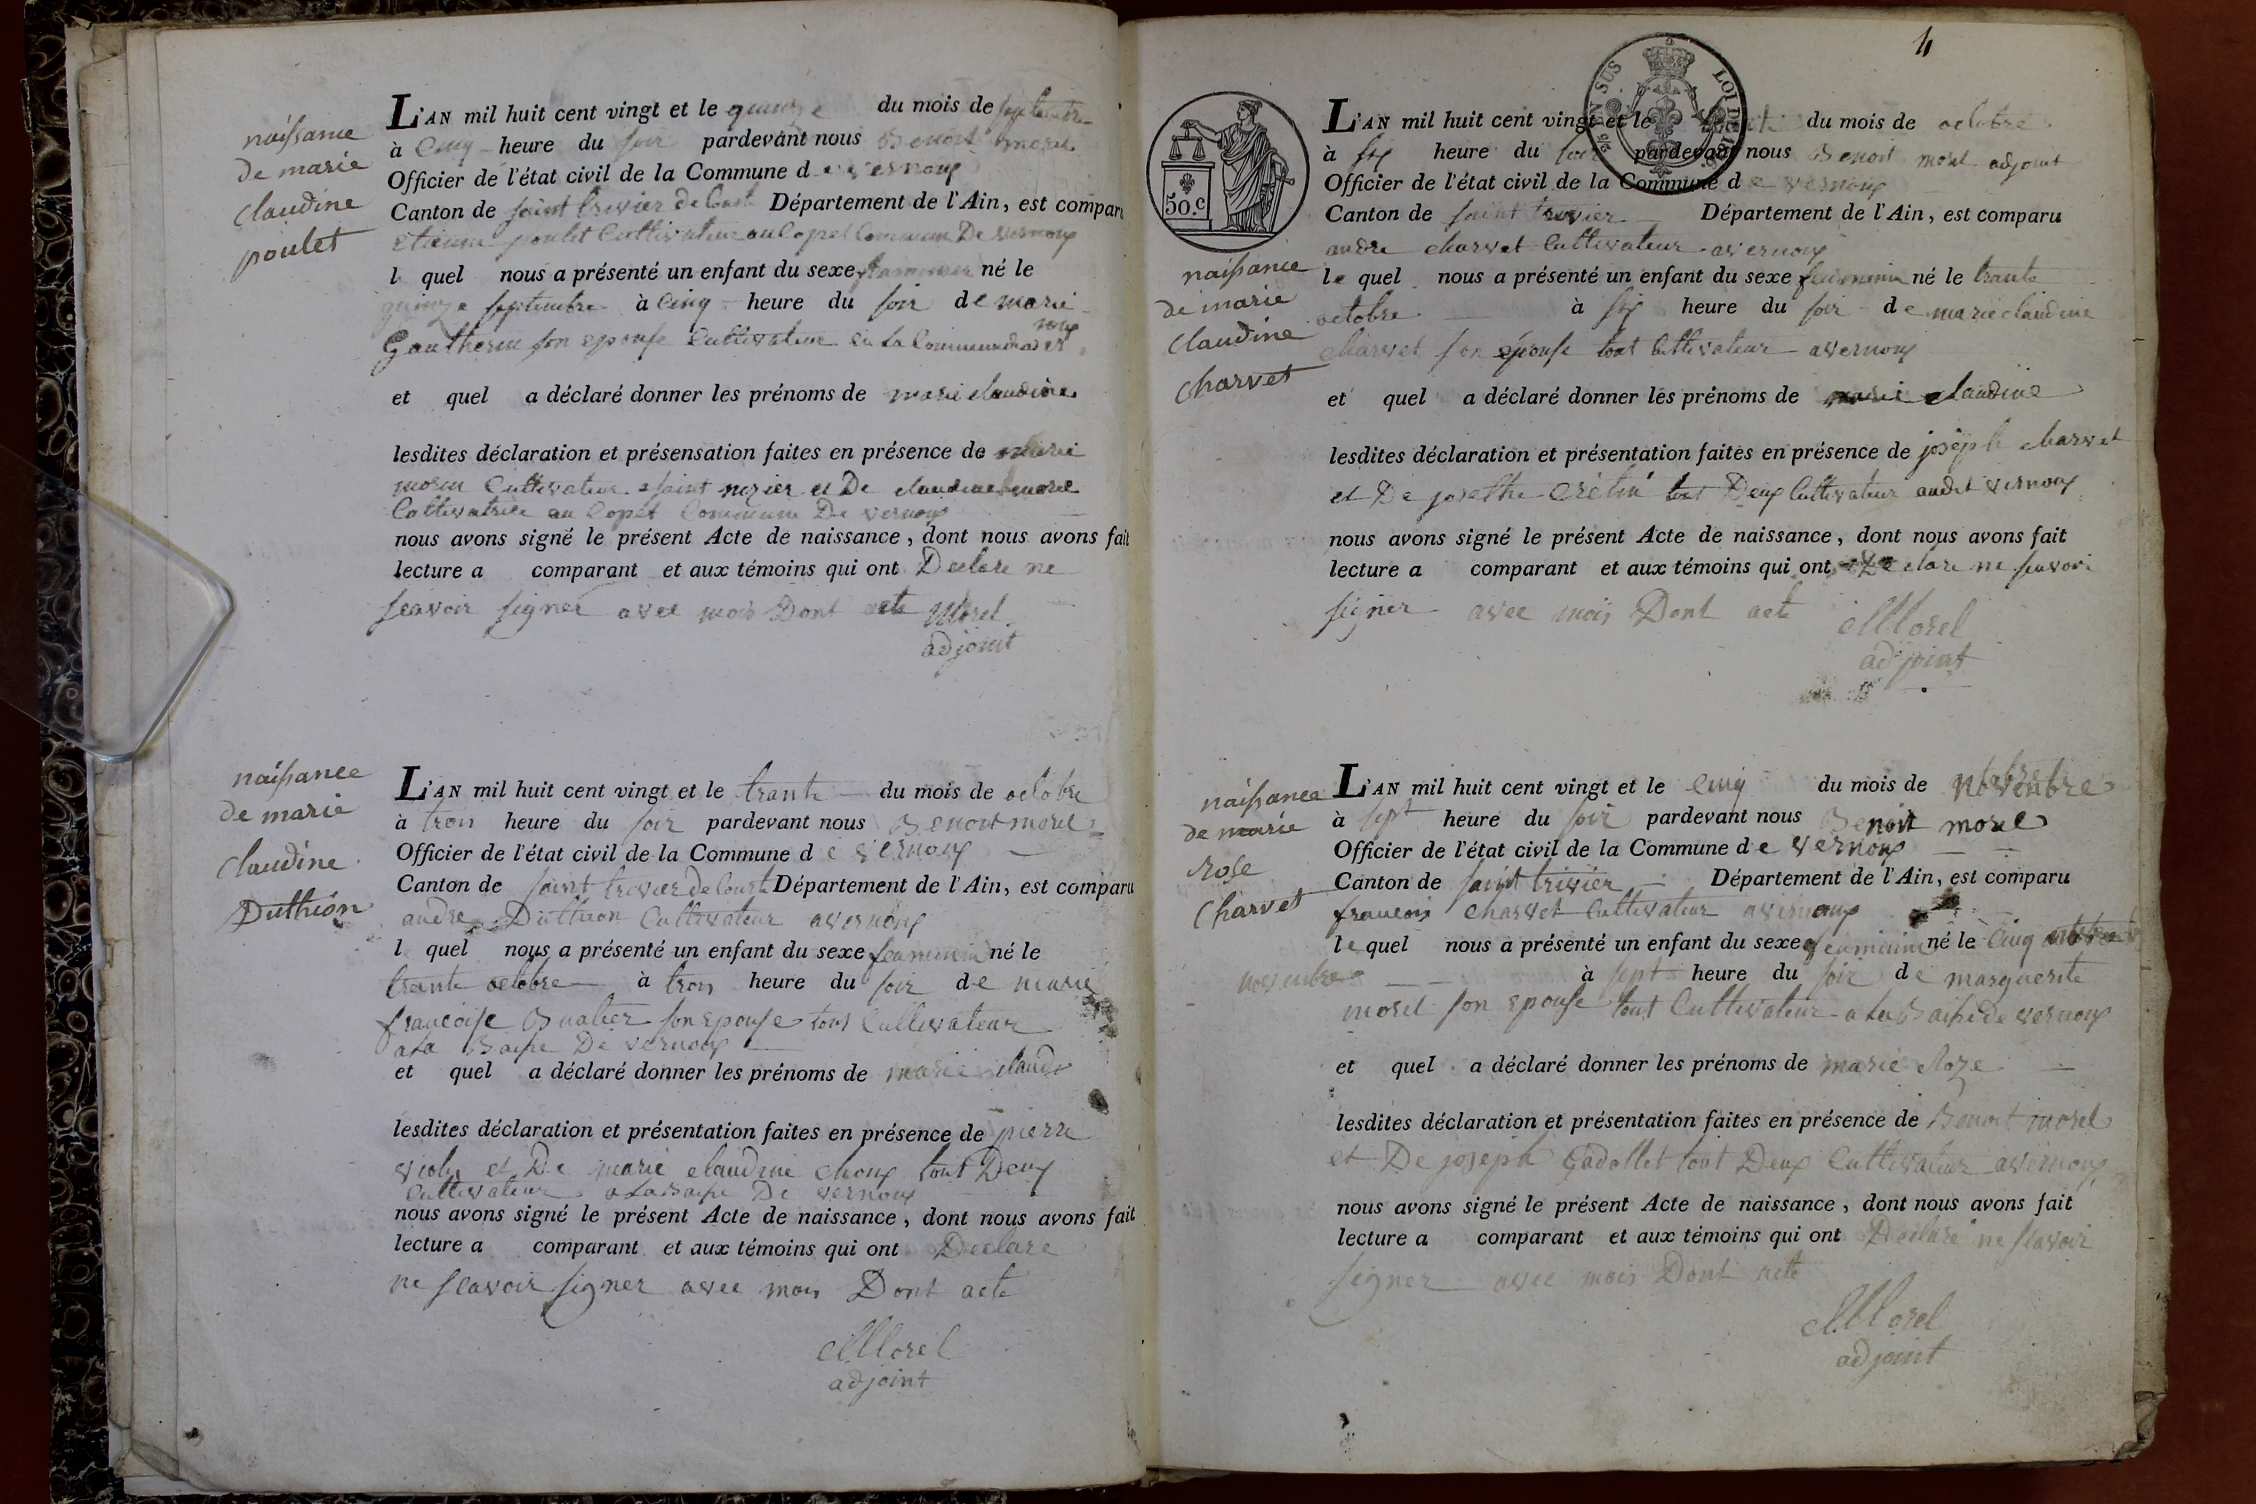 naissance
de marie
claudine
poulet
L'AN mil huit cent vingt et le quinze du mois de septembre
à Cinq heure du soir pardevant nous Benoit morel
Officier de l'état civil de la Commune de vernoux
Canton de saint trivier de Court Département de l'Ain, est comparu
etienne poulet Cultivateur au Copet Commune De vernoux
l quel nous a présenté un enfant du sexe né le
quinze septembre à Cinq heure du soir de marie
Gautherin son epouse Cultivateur en la Commune de vernoux
et quel a déclaré donner les prénoms de marie claudine
lesdites déclaration et présensation faites en présence de marie
morin Cultivateur a saint nizier et De claudine morel
Cultivatrice au Copet Commune De vernoux
nous avons signé le présent Acte de naissance, dont nous avons fait
lecture a comparant et aux témoins qui ont Declare ne
scavoir signer avec mois Dont acte Morel
adjoint
naissance
de marie
claudine
Duthion
L'AN mil huit cent vingt et le trante du mois de octobre
à trois heure du soir pardevant nous Benoit morel
Officier de l'état civil de la Commune de vernoux
Canton de saint trivier de Court Département de l'Ain, est comparu
andre Duthion Cultivateur a vernoux
l quel nous a présenté un enfant du sexe feaminin né le
trante octobre à trois heure du soir de marie
francoise Buatier son epouse tout Cultivateur
a La Baisse De vernoux
et quel a déclaré donner les prénoms de marie claud
lesdites déclaration et présentation faites en présence de pierre
violy et De marie claudine choux tout Deux
Cultivateur a La Baisse De vernoux
nous avons signé le présent Acte de naissance, dont nous avons fait
lecture a comparant et aux témoins qui ont Declare
ne scavoir signer avec mois Dont acte
Morel
adjoint
4
50.c
EN SUS
LOI DE
naissance
de marie
claudine
charvet
L'AN mil huit cent vingt et le du mois de octobre
à six heure du soir pardevant nous Benoit morel adjoint
Officier de l'état civil de la Commune de vernoux
Canton de saint trivier Département de l'Ain, est comparu
andre charvet Cultivateur a vernoux
le quel nous a présenté un enfant du sexe feaminin né le trante
octobre à six heure du soir de marie claudine
charvet son épouse tout Cultivateur a vernoux
et quel a déclaré donner les prénoms de marie claudine
lesdites déclaration et présentation faites en présence de joseph charvet
et De josethe Crétin tout Deux Cultivateur audit vernoux
nous avons signé le présent Acte de naissance, dont nous avons fait
lecture a comparant et aux témoins qui ont Declare ne scavoir
signer avec mois Dont acte
Morel
adjoint
naissance
de marie
rose
charvet
L'AN mil huit cent vingt et le Cinq du mois de Novembre
à sept heure du soir pardevant nous Benoit morel
Officier de l'état civil de la Commune de vernoux
Canton de saint trivier Département de l'Ain, est comparu
francois charvet Cultivateur a vernoux
le quel nous a présenté un enfant du sexe feaminin né le Cinq
novembre à sept heure du soir de marguerite
morel son epouse tout Cultivateur a La Baisse de vernoux
et quel a déclaré donner les prénoms de marie Roze
lesdites déclaration et présentation faites en présence de Benoit morel
et De joseph Gadollet tout Deux Cultivateur a vernoux
nous avons signé le présent Acte de naissance, dont nous avons fait
lecture a comparant et aux témoins qui ont Declare ne scavoir
signer avec mois Dont acte
Morel
adjoint